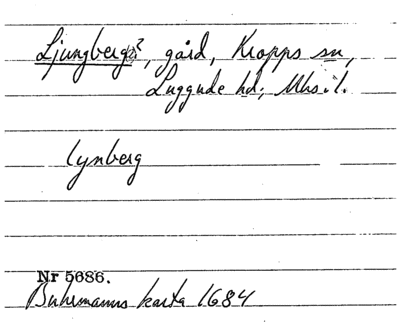 Ljungberg?, gård, Kropps sn,
Luggude hd, Mhs. l.
lynberg
Nr 5686.
Buhrmanns karta 1684